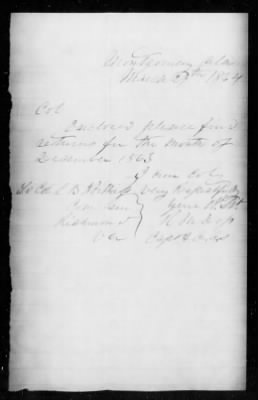 Montgomery Alama
March 29th 1864
Col
Enclosed please find
returns for the month of
December 1863
I am Col
Very Respectfully
Your Obt Svt
To Col
Richmond
Va
Capt &